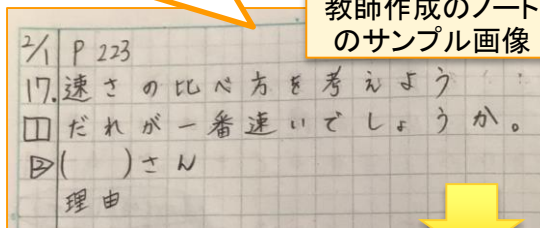 教師作成のノート
のサンプル画像
2/1 P 223
17. 速さの比べ方を考えよう
1 だれが一番速いでしょうか。
(  )さん
理由